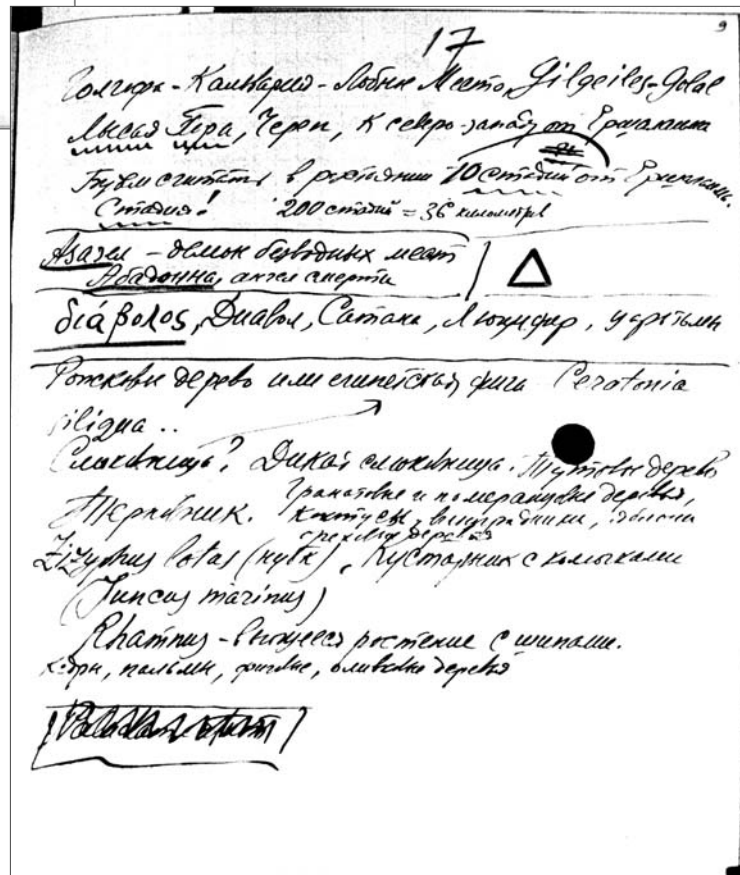 9
17
Голгофа - Кальвария - Лобное Место, Gilgeiles-Golal
Лысая Гора, Череп, К северо-западу от Ершалаима
Будем считать в расстоянии 10 стадий от Ершалаима.
Стадия! 200 стадий = 36 километров
Азазел - демон безводных мест
Абадонна, ангел смерти
διάβολος, Диавол, Сатана, Люцифер,
Рожковое дерево или египетская фига Ceratonia
siliqua ..
Смоковница? Дикая смоковница. Тутовое дерево
Терновник. Гранатовые и померанцевые деревья,
кактусы, виноградники, яблони
ореховые деревья
Zizyphus lotus, Кустарник с колючками
(Juncus marinus)
Rhamnus - вьющееся растение с шипами.
кедры, пальмы, фиговые, оливковые деревья